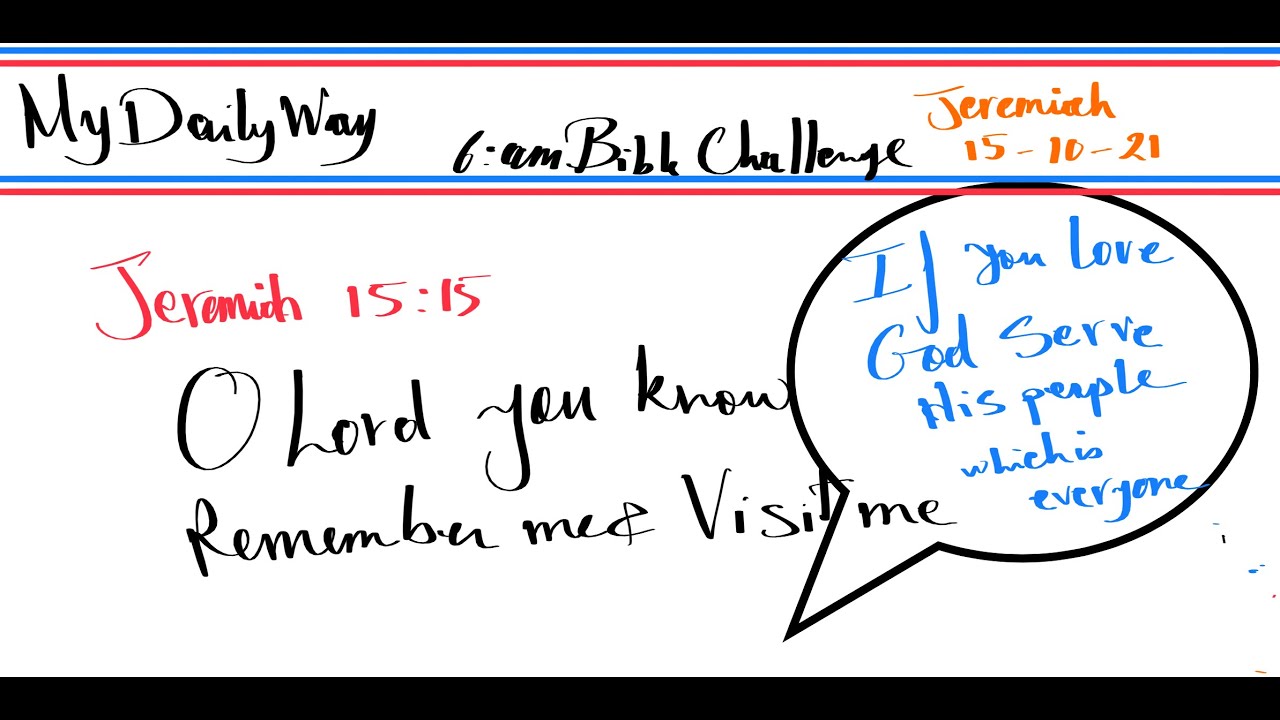 My Daily Way
6:am Bible Challenge
Jeremiah
15-10-21
Jeremiah 15:15
O Lord you know
Remember me & Visit me
If you Love
God Serve
His people
which is
everyone